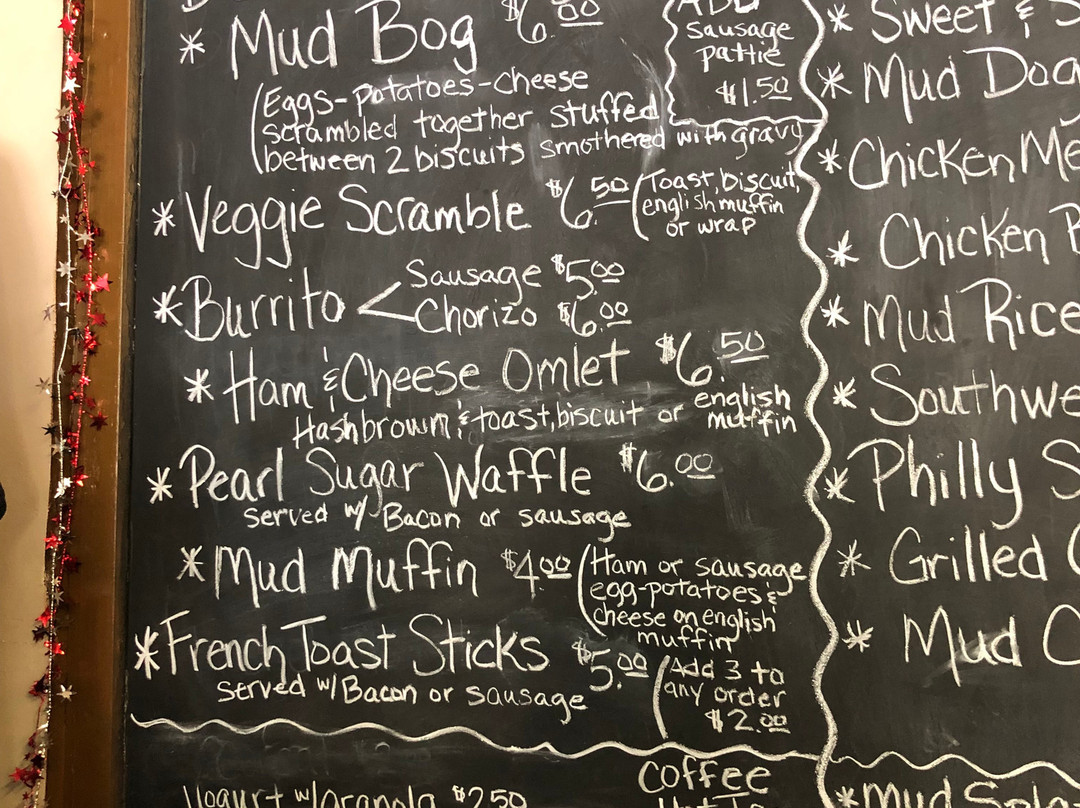 * Mud Bog $6.00
(Eggs-potatoes-cheese
scrambled together stuffed
between 2 biscuits smothered with gravy
ADD
sausage
pattie
$1.50
* Veggie Scramble $6.50
(Toast, biscuit,
english muffin
or wrap
* Burrito < Sausage $5.00
Chorizo $6.00
* Ham & Cheese Omlet $6.50
Hashbrown & toast, biscuit or english
muffin
* Pearl Sugar Waffle $6.00
served w/ Bacon or sausage
* Mud Muffin $4.00
(Ham or sausage
egg-potatoes &
cheese on english
muffin
* French Toast Sticks $5.00
served w/Bacon or sausage
(Add 3 to
any order
$2.00
Yogurt w/Granola $2.50
COFFEE
* Sweet &
* Mud Dog
* Chicken Me
* Chicken
* Mud Rice
* Southwe
* Philly S
* Grilled
* Mud
* Mud